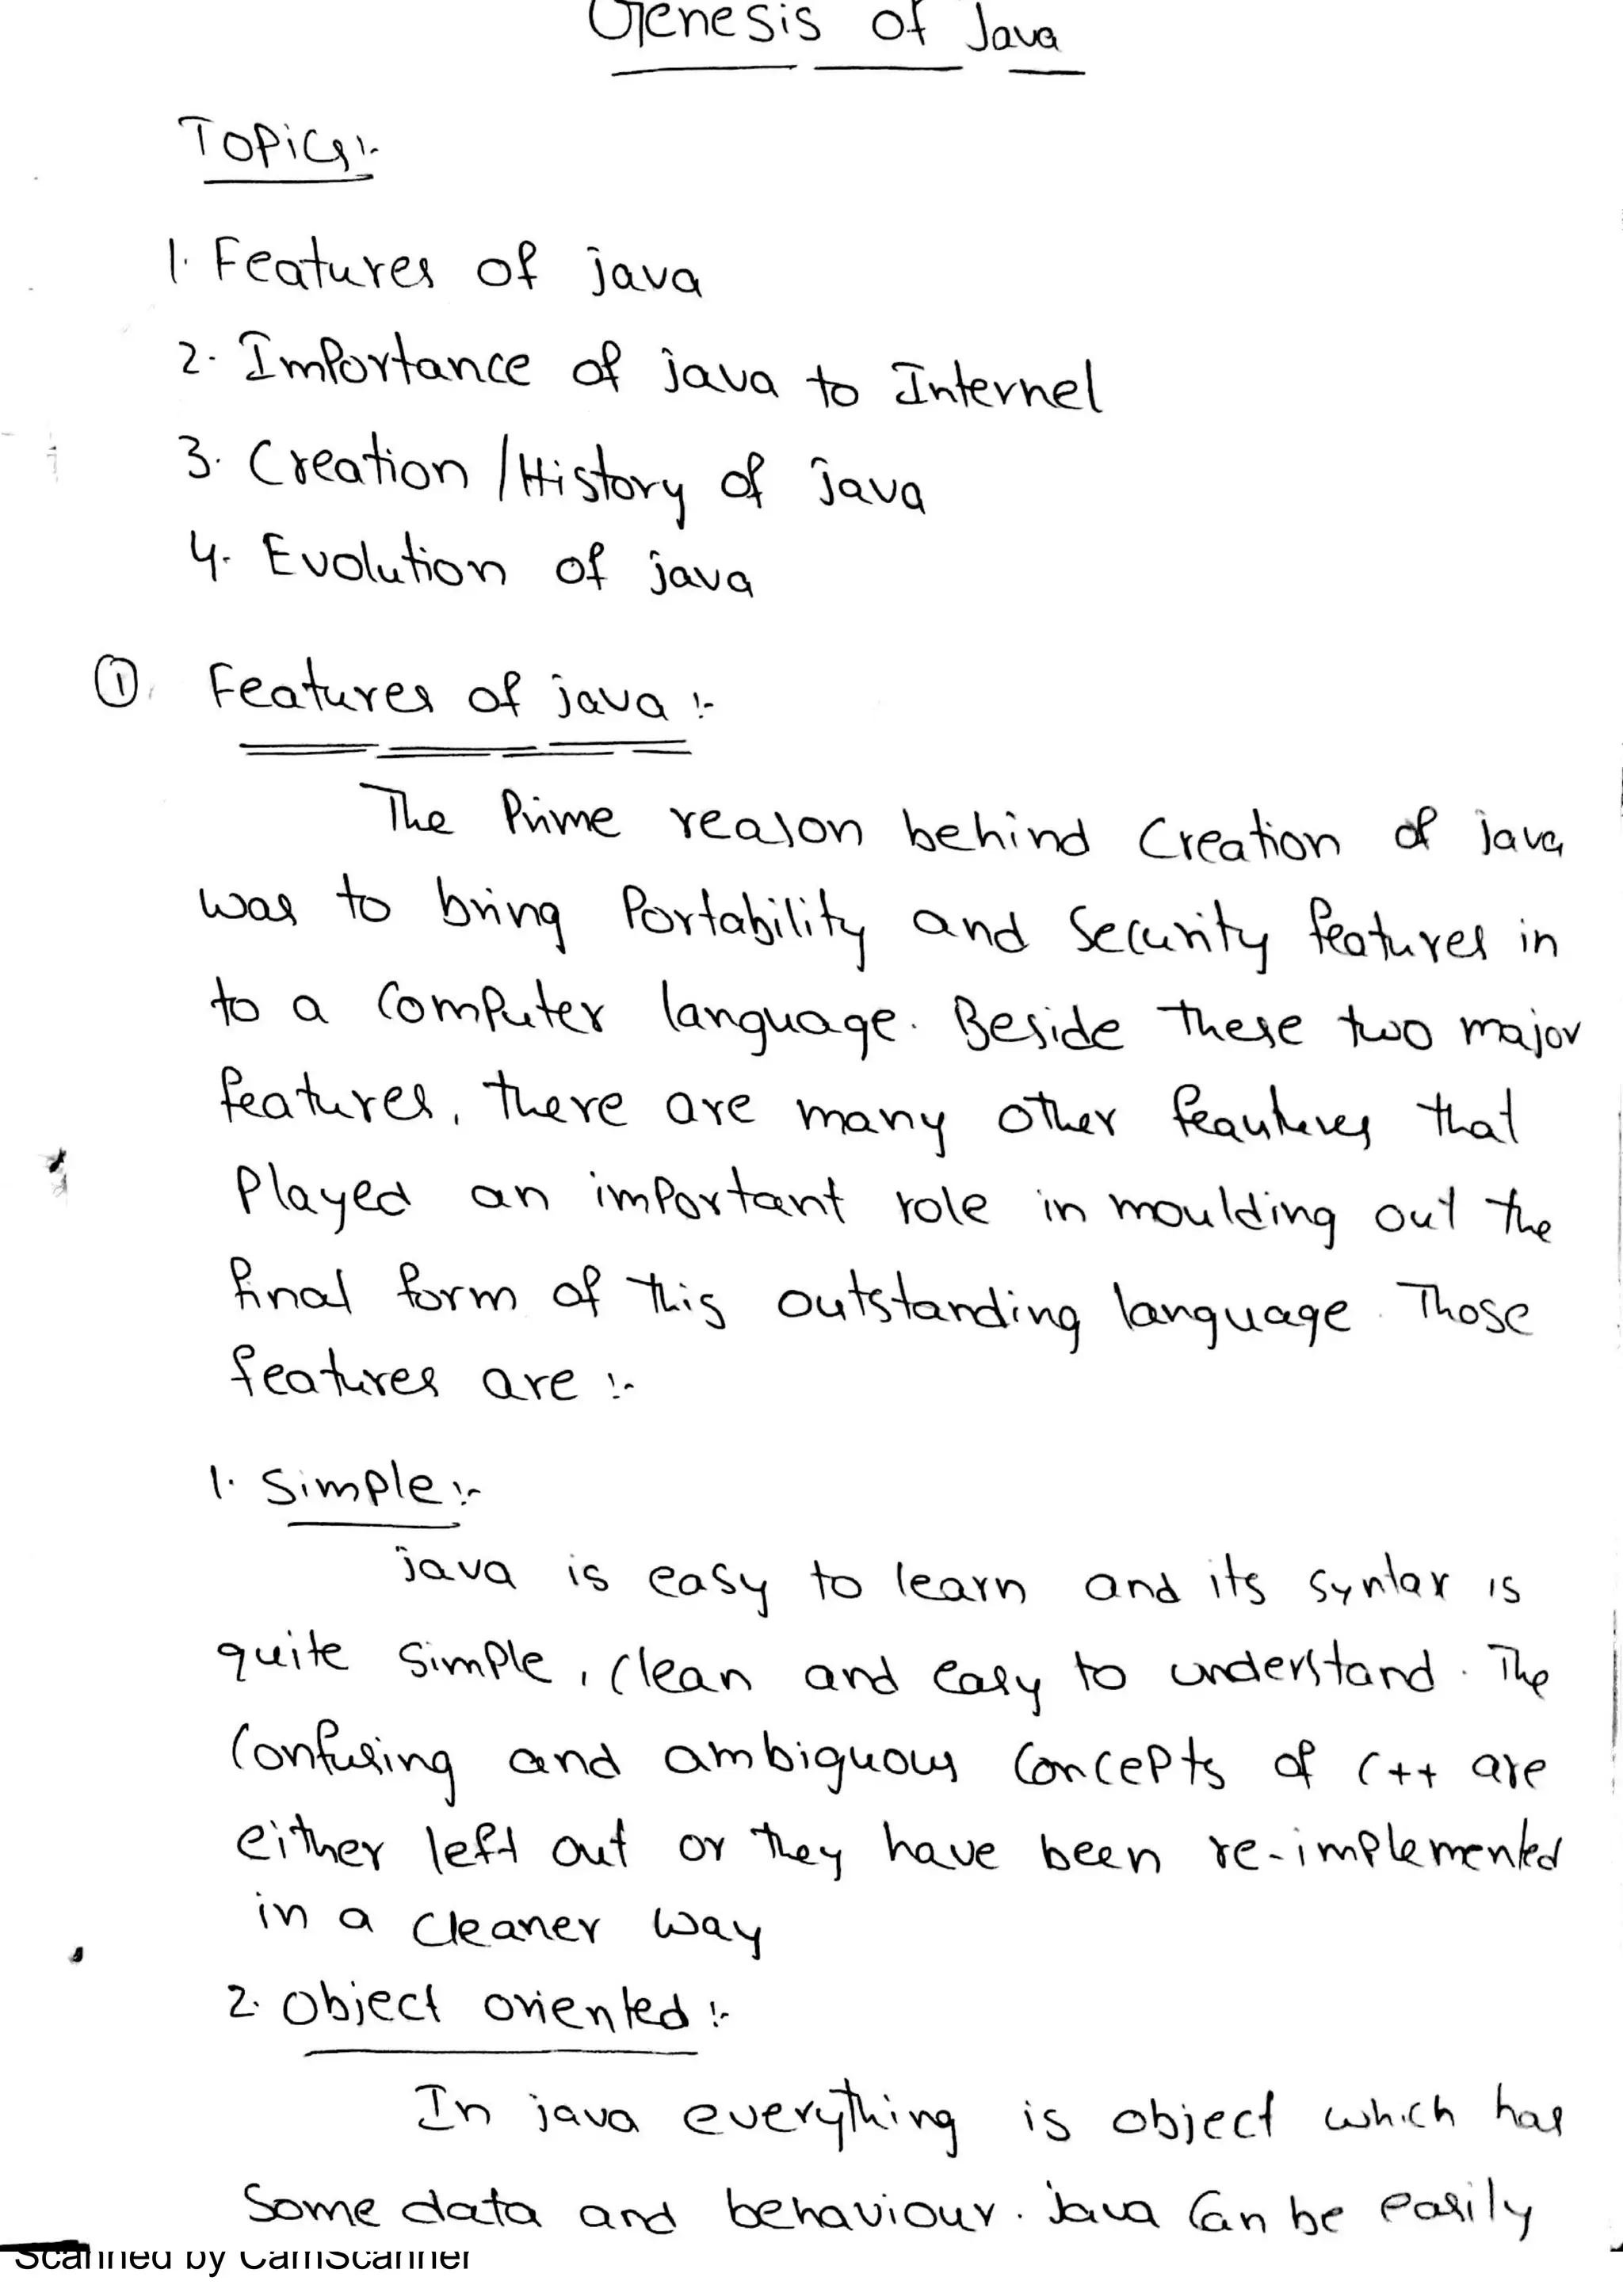 Genesis of Java
Topics:-
1. Features of java
2. Importance of java to Internet
3. Creation / History of java
4. Evolution of java
① Features of java :-
The Prime reason behind Creation of java
was to bring Portability and Security features in
to a Computer language. Beside these two major
features, there are many other feautures that
Played an important role in moulding out the
final form of this outstanding language. Those
features are :-
1. Simple :-
java is easy to learn and its syntax is
quite simple, clean and easy to understand. The
Confusing and ambiguous Concepts of C++ are
either left out or they have been re-implemented
in a cleaner way
2. Object oriented :-
In java everything is object which has
Some data and behaviour. java Can be easily
Scanned by CamScanner